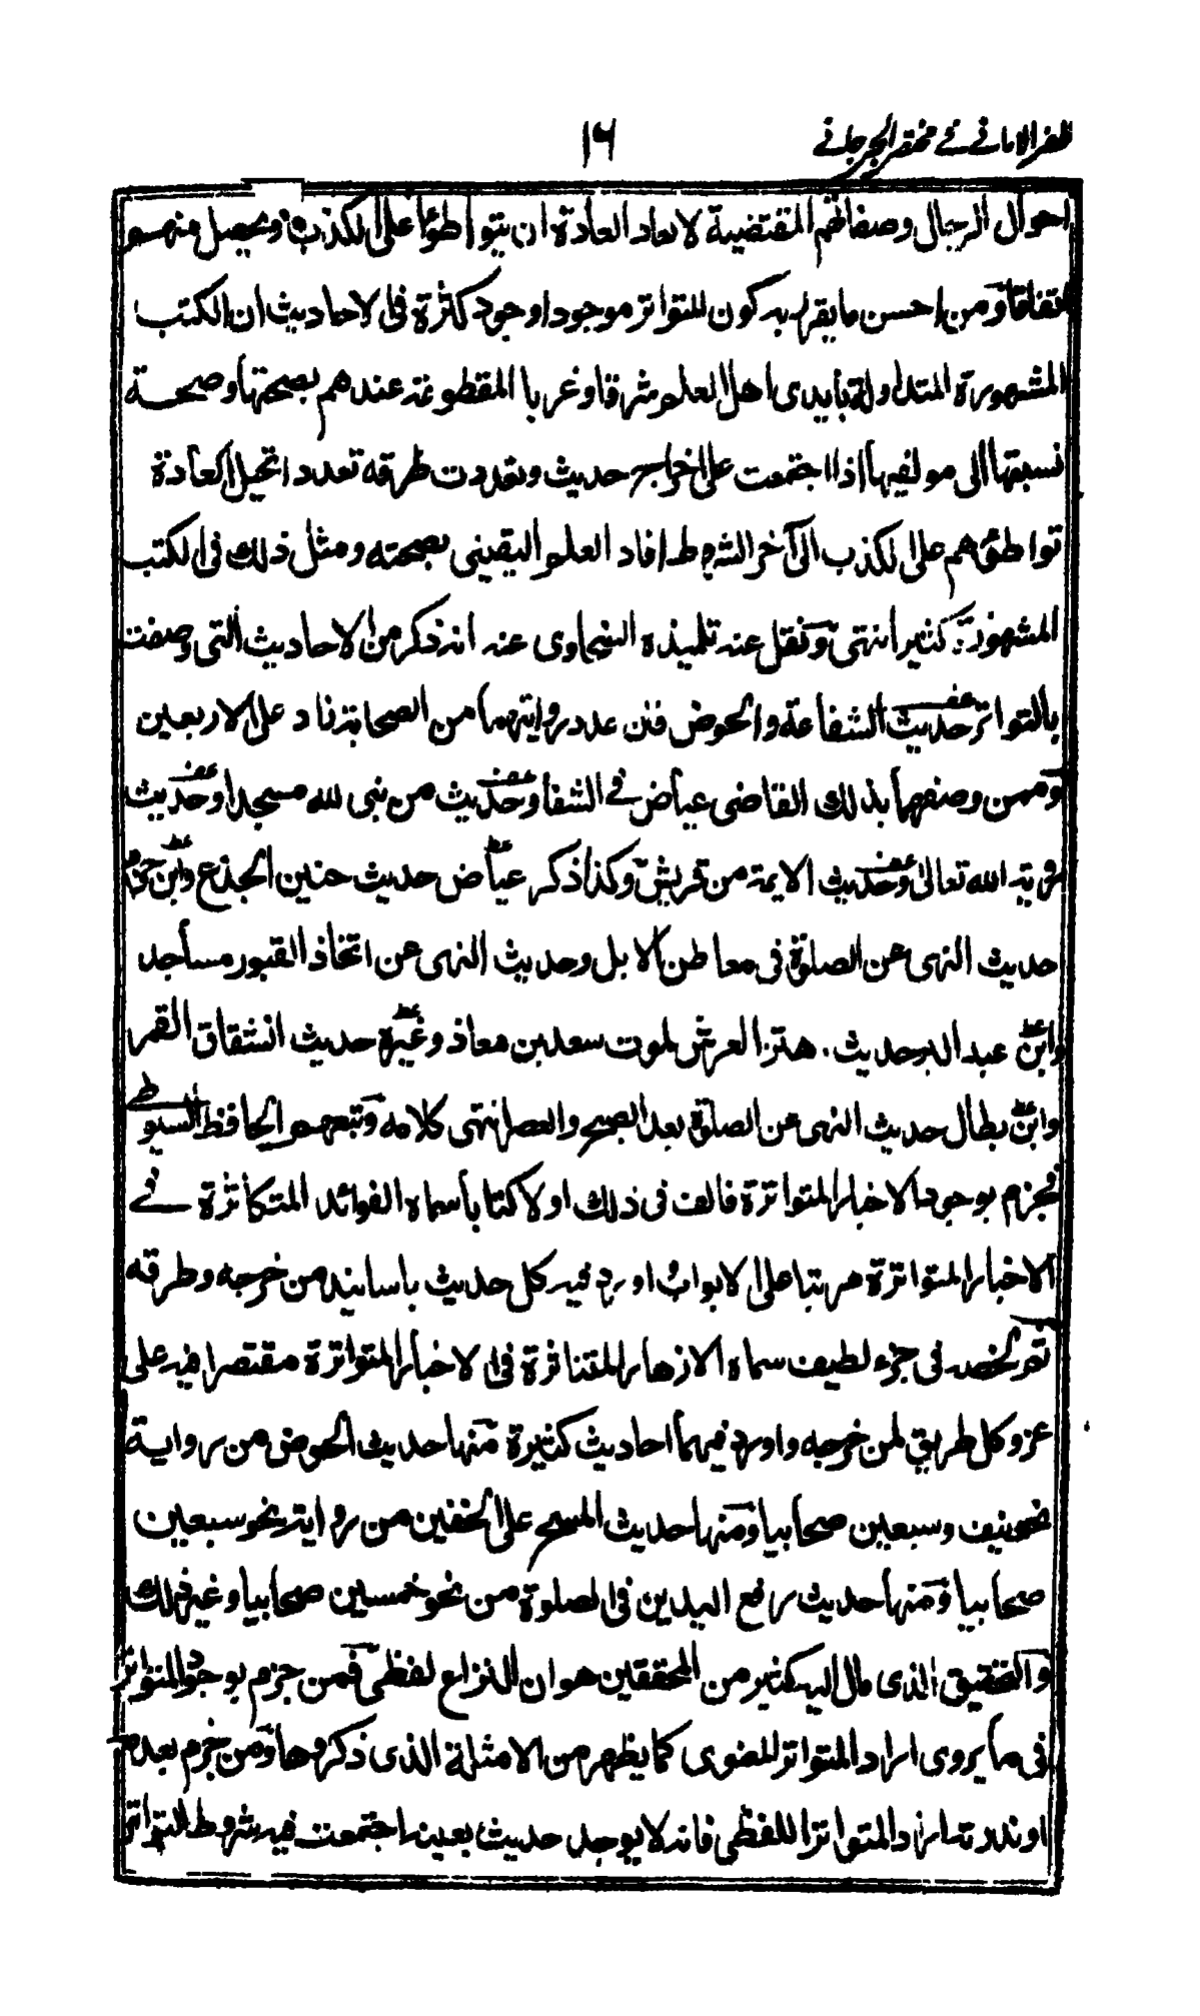 ظفر الامانی فی مختصر الجرجانی
١٦
احوال الرجال وصفاتهم المقتضية لابعاد العادة ان يتواطؤا على الكذب او يحصل منهم
اتفاقا ومن احسن ما يقرر به كون المتواتر موجودا وجود كثرة فى الاحاديث ان الكتب
المشهورة المتداولة بأيدى اهل العلم شرقا وغربا المقطوعة عندهم بصحتها وصحة
نسبتها الى مولفيها اذا اجتمعت على اخراج حديث وتعددت طرقه تعددا تحيل العادة
تواطئهم على الكذب الى آخر الشروط افاد العلم اليقينى بصحته ومثل ذلك فى الكتب
المشهورة كثير انتهى ونقل عنه تلميذه السخاوى عنه انه ذكر من الاحاديث التى وصفت
بالتواتر حديث الشفاعة والحوض فان عدد رواتهما من الصحابة زاد على الاربعين
وممن وصفهما بذلك القاضى عياض فے الشفا وحديث من بنى لله مسجدا وحديث
روية الله تعالى وحديث الايمة من قريش وكذا ذكر عياض حديث حنين الجذع وابن حزم
حديث النهى عن الصلوة فى معاطن الابل وحديث النهى عن اتخاذ القبور مساجد
وابن عبد البر حديث اهتز العرش لموت سعد بن معاذ وغيره حديث انشقاق القمر
وابن بطال حديث النهى عن الصلوة بعد الصبح والعصر انتهى كلامه وتبعهم الحافظ السيوطى
فجزم بوجود الاخبار المتواترة فالف فى ذلك اولا كتابا سماه الفوائد المتكاثرة فے
الاخبار المتواترة مرتبا على الابواب اورد فيه كل حديث باسانيد من خرجه وطرقه
ثم لخصه فى جزء لطيف سماه الازهار المتناثرة فى الاخبار المتواترة مقتصرا فيه على
عزو كل طريق لمن خرجه واورد فيهما احاديث كثيرة منها حديث الحوض من رواية
نحو نيف وسبعين صحابيا ومنها حديث المسح على الخفين من رواية نحو سبعين
صحابيا ومنها حديث رفع اليدين فى الصلوة من نحو خمسين صحابيا وغير ذلك
والتحقيق الذى مال اليه كثير من المحققين هو ان النزاع لفظى فمن جزم بوجود المتواتر
فى ما يروى اراد المتواتر المعنوى كما يظهر من الامثلة الذى ذكروها ومن جزم بعدمه
او ندرته اراد المتواتر اللفظى فانه لا يوجد حديث بعينه اجتمعت فيه شروط التواتر